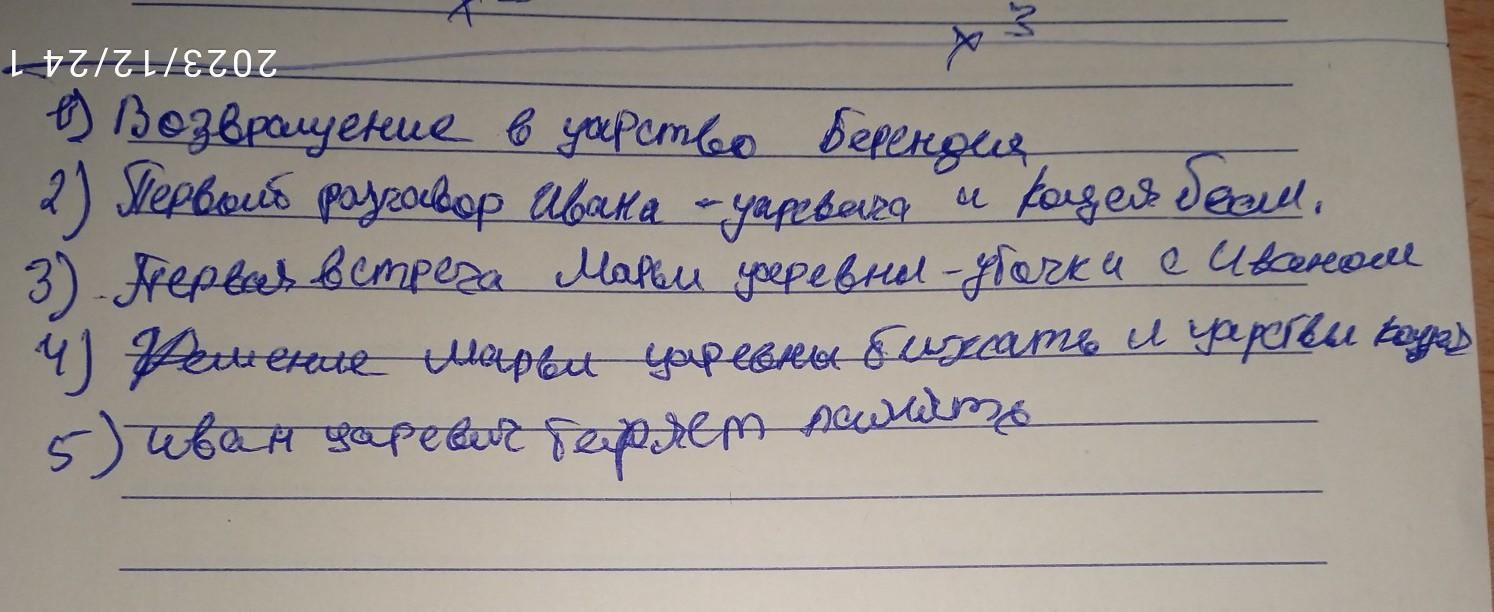 х 3
2023/12/24 1
1) Возвращение в царство Берендея
2) Первый разговор Ивана-царевича и Кощея бесм.
3) Первая встреча Марьи царевны-уточки с Иваном
4) Решение Марьи царевны бижать и царствы кощея
5) иван царевич теряет память